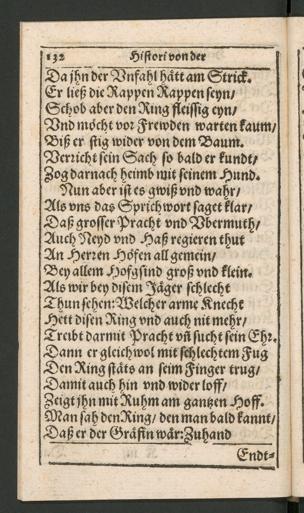 132 Histori von der
Da jhn der Vnfahl hätt am Strick.
Er ließ die Rappen Rappen seyn/
Schob aber den Ring fleissig eyn/
Vnd möcht vor Frewden warten kaum/
Biß er stig wider von dem Baum.
Verricht sein Sach so bald er kundt/
Zog darnach heimb mit seinem Hund.
Nun aber ist es gwiß vnd wahr/
Als vns das Sprichwort saget klar/
Daß grosser Pracht vnd Vbermuth/
Auch Neyd vnd Haß regieren thut
An Herren Höfen all gemein/
Bey allem Hofgsind groß vnd klein.
Als wir bey disem Jäger schlecht
Thun sehen: Welcher arme Knecht
Hett disen Ring vnd auch nit mehr/
Treibt darmit Pracht vñ sucht sein Ehr.
Dann er gleichwol mit schlechtem Fug
Den Ring stäts an seim Finger trug/
Damit auch hin vnd wider loff/
Zeigt jhn mit Ruhm am gantzen Hoff.
Man sah den Ring/ den man bald kannt/
Daß er der Gräfin wär: Zuhand
Endt=